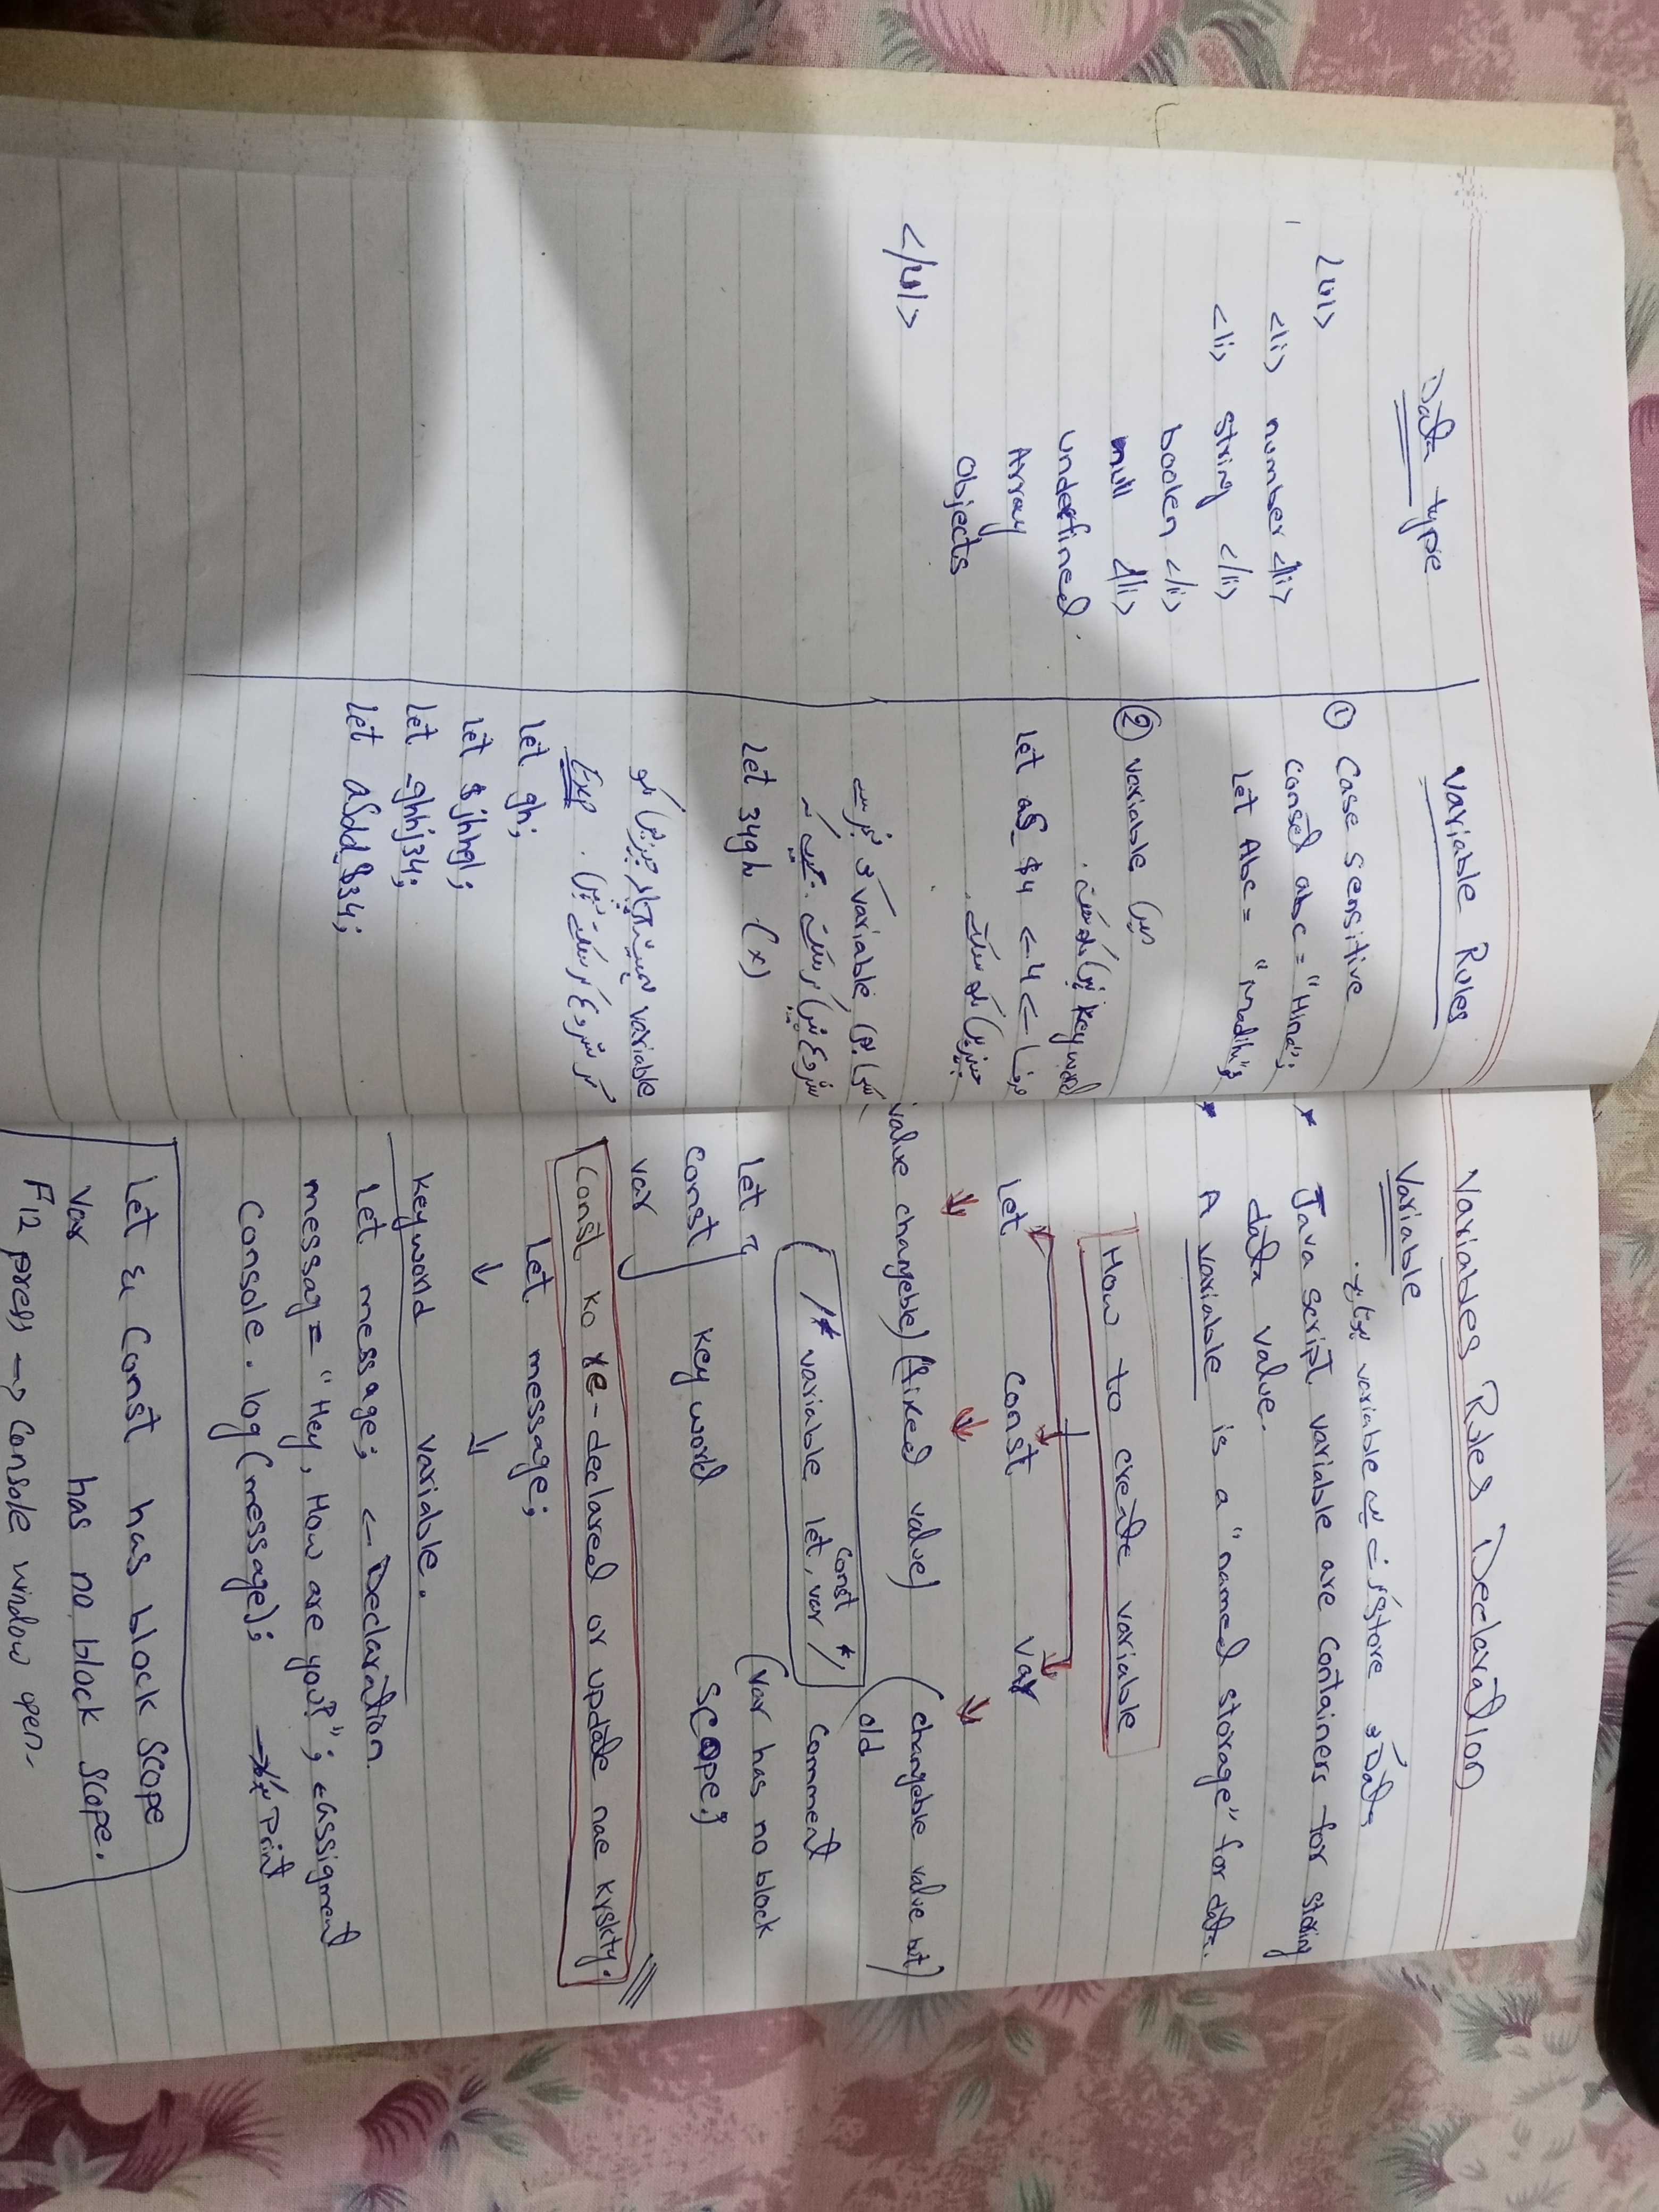 Data type
<ul>
<li> number <li>
<li> string </li>
boolen </li>
null </li>
underfined.
Array
Objects
</ul>
Variable Rules
① Case sensitive
consel abc = "Hina";
Let Abc = "Madih";
② variable میں
key word نہیں
Let aS_$4 ← 4 ←
چیزیں
variable
شروع نہیں کر سکتے
Let 34gh (x)
variable ہمیشہ چار چیزیں
شروع کر سکتے ہیں.
Exp
Let gh;
Let $jhhgl;
Let _ghhj34;
Let aSdd_$34;
Variables Rules Declaration
Variable
Data store variable
* Java script variable are Containers for storing
data value.
* A variable is a "named storage" for data.
How to create variable
Let Const Var
value changeble) (fixed value) (changeble value but)
(old
(/* variable let, var const */) Comment
Let
const key word (var has no block
var scope;)
Const ko re-declared or update nae krskty.
Let message;
↓ ↓
keyword variable.
Let message; ← Declaration
messag = "Hey, How are you?"; ← assigment
Console.log(message); → Print
Let & Const has block scope
Var has no block scope.
F12 press → Console window open.